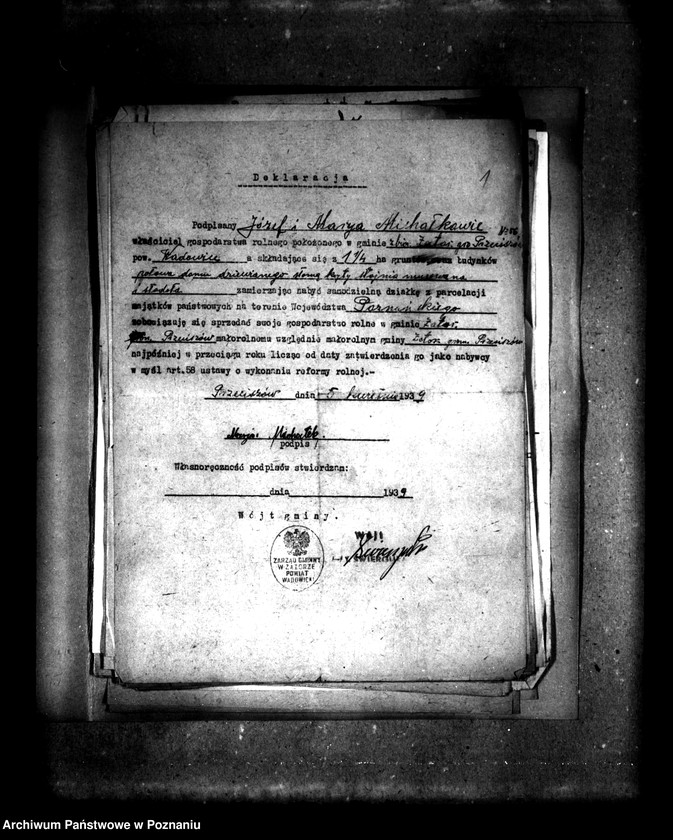 1
Deklaracja
Podpisany Józef i Marya Michałkowie
właściciel gospodarstwa rolnego położonego w gminie Zator
pow. Wadowice a składające się z 1 1/4 ha gruntu budynków
połowa domu drewnianego słomą kryty stajnia murowana
i stodoła zamierzając nabyć samodzielną działkę z parcelacji
majątków państwowych na terenie Województwa Poznańskiego
zobowiązuję się sprzedać swoje gospodarstwo rolne w gminie Zator.
małorolnemu względnie małorolnym gminy Zator gm. Przeciszów
najpóźniej w przeciągu roku licząc od daty zatwierdzenia go jako nabywcy
w myśl art.58 ustawy o wykonaniu reformy rolnej.-
Przeciszów dnia 5 kwietnia 1939
Marja Michałek.
podpis
Własnoręczność podpisów stwierdzam:
dnia 1939
Wójt gminy.
Wójt
ZARZĄD GMINNY
W ZATORZE
POWIAT
WADOWICKI
Archiwum Państwowe w Poznaniu